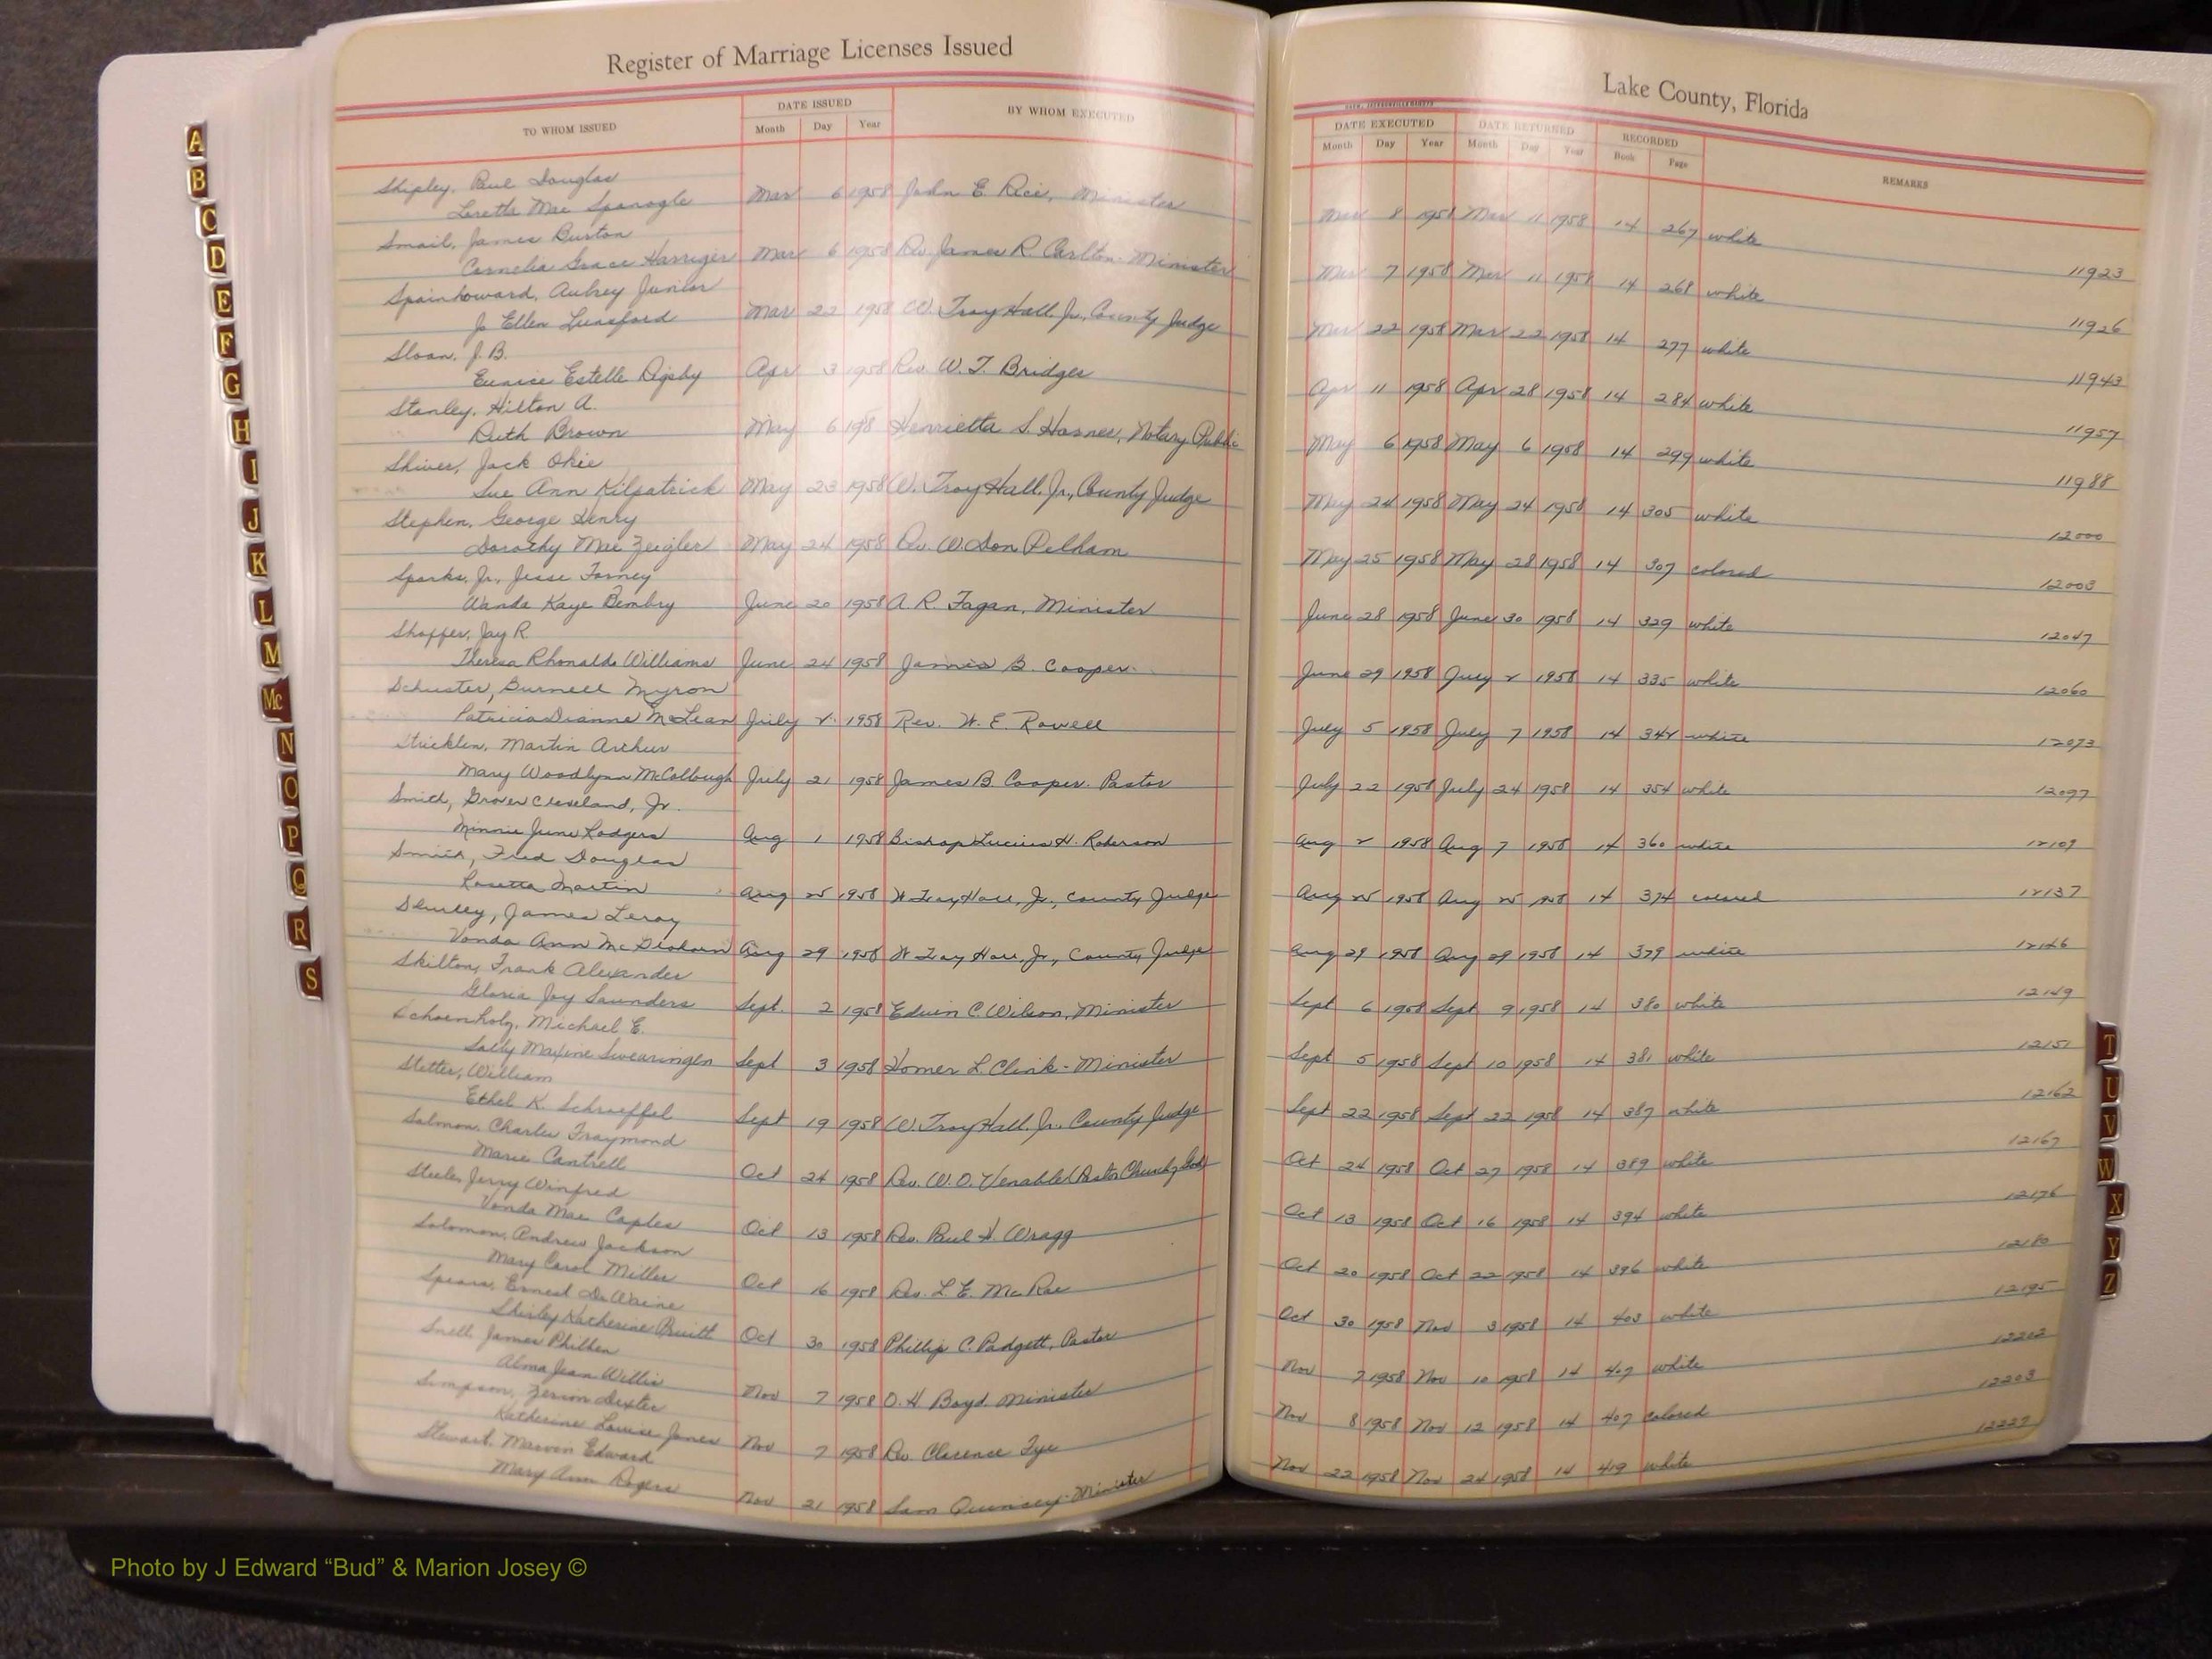 Register of Marriage Licenses Issued
Lake County, Florida
TO WHOM ISSUED
DATE ISSUED
Month Day Year
BY WHOM EXECUTED
DATE EXECUTED
Month Day Year
DATE RETURNED
Month Day Year
RECORDED
Book Page
REMARKS
Shipley, Paul Douglas
Loretta Mae Spanogle Mar 6 1958 John E. Rice, Minister Mar 8 1958 Mar 11 1958 14 267 white 11923
Smail, James Burton
Cornelia Grace Harriger Mar 6 1958 Rev. James R. Carlton - Minister Mar 7 1958 Mar 11 1958 14 268 white 11926
Spainhoward, Aubrey Junior
Jo Ellen Lunsford Mar 22 1958 W. Troy Hall, Jr., County Judge Mar 22 1958 Mar 22 1958 14 277 white 11943
Sloan, J.B.
Eunice Estelle Digby Apr 3 1958 Rev. W.T. Bridges Apr 11 1958 Apr 28 1958 14 284 white 11957
Stanley, Hilton A.
Ruth Brown May 6 198 Henrietta S. Notary Public May 6 1958 May 6 1958 14 299 white 11988
Shiver, Jack Okie
Sue Ann Kilpatrick May 23 1958 W. Troy Hall, Jr., County Judge May 24 1958 May 24 1958 14 305 white 12000
Stephen, George Henry
Dorothy Mae Zeigler May 24 1958 Rev. W. Don Pelham May 25 1958 May 28 1958 14 307 colored 12003
Sparks, Jr., Jesse Forney
Wanda Kaye Bembry June 20 1958 A.R. Fagan, Minister June 28 1958 June 30 1958 14 329 white 12047
Shaffer, Jay R.
Theresa Rhonalda Williams June 24 1958 James B. Cooper June 29 1958 July 2 1958 14 335 white 12060
Schuster, Burnell Myron
Patricia Dianne McLean July 2 1958 Rev. W.E. Rowell July 5 1958 July 7 1958 14 342 white 12073
Stricklin, Martin Arthur
Mary Woodlynn McCollough July 21 1958 James B. Cooper. Pastor July 22 1958 July 24 1958 14 354 white 12097
Smith, Grover Cleveland, Jr.
Minnie June Rodgers Aug 1 1958 Bishop Lucius H. Roberson Aug 2 1958 Aug 7 1958 14 360 white 12109
Smith, Fred Douglas
Rosetta Martin Aug 25 1958 W Troy Hall, Jr., County Judge Aug 25 1958 Aug 25 1958 14 374 colored 12137
James Leroy
Vonda Ann Aug 29 1958 W Troy Hall, Jr., County Judge Aug 29 1958 Aug 29 1958 14 379 white 12146
Skilton, Frank Alexander
Gloria Joy Saunders Sept. 2 1958 Edwin C. Wilson, Minister Sept 6 1958 Sept 9 1958 14 380 white 12149
Schoenholz, Michael E.
Sally Maxine Swearingen Sept 3 1958 Homer L. Clink - Minister Sept 5 1958 Sept 10 1958 14 381 white 12151
Stetter, William
Ethel K. Schroeffel Sept 19 1958 W. Troy Hall, Jr. County Judge Sept 22 1958 Sept 22 1958 14 387 white 12162
Salmon, Charles Fraymond
Marie Cantrell Oct 24 1958 Rev. W.O. Venable (Pastor Church of God) Oct 24 1958 Oct 27 1958 14 389 white 12167
Steele, Jerry Winfred
Vonda Mae Caples Oct 13 1958 Rev. Paul H. Wragg Oct 13 1958 Oct 16 1958 14 394 white 12176
Solomon, Andrew Jackson
Mary Carol Miller Oct 16 1958 Rev. L.E. McRae Oct 20 1958 Oct 22 1958 14 396 white 12180
Spears, Ernest DeWaine
Shirley Katherine Pruitt Oct 30 1958 Phillip C. Padgett, Pastor Oct 30 1958 Nov 3 1958 14 403 white 12195
Snell, James Philben
Alma Jean Willis Nov 7 1958 O.H. Boyd. Minister Nov 7 1958 Nov 10 1958 14 407 white 12202
Simpson, Dexter
Katherine Louise Jones Nov 7 1958 Rev Clarence Tye Nov 8 1958 Nov 12 1958 14 407 colored 12203
Stewart, Marvon Edward
Mary Ann Rogers Nov 21 1958 Sam Quincey - Minister Nov 22 1958 Nov 24 1958 14 419 white 12227
A
B
C
D
E
F
G
H
I
J
K
L
M
Mc
N
O
P
Q
R
S
T
U
V
W
X
Y
Z
Photo by J Edward “Bud” & Marion Josey ©